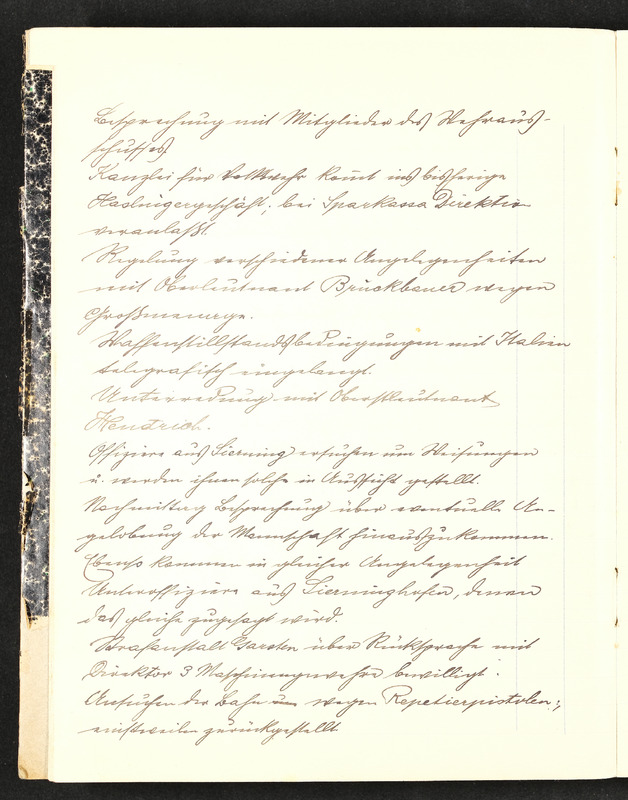 Besprechung mit Mitglieder des Wehraus-
schusses.
Kanzlei für Volkswehr kommt ins bisherige
Haslingergeschäft, bei Sparkassa Direktor
veranlaßt.
Regelung verschiedener Angelegenheiten
mit Oberleutnant Bruckbauer wegen
Großmenage.
Waffenstillstandsbedingungen mit Italien
telegrafisch eingelangt.
Unterredung mit Oberstleutnant
Hendrich.
Offiziere aus Sierning ersuchen um Weisungen
u. werden ihnen solche in Aussicht gestellt.
Nachmittag Besprechung über eventuelle An-
gelobung der Mannschaft hinauszukommen.
Ebenso kommen in gleicher Angelegenheit
Unteroffiziere aus Sierninghofen, denen
das gleiche zugesagt wird.
Strafanstalt Garsten über Rücksprache mit
Direktor 3 Maschinengewehre bewilligt.
Ansuchen der Bahn um wegen Repetierpistolen;
einstweilen zurückgestellt.